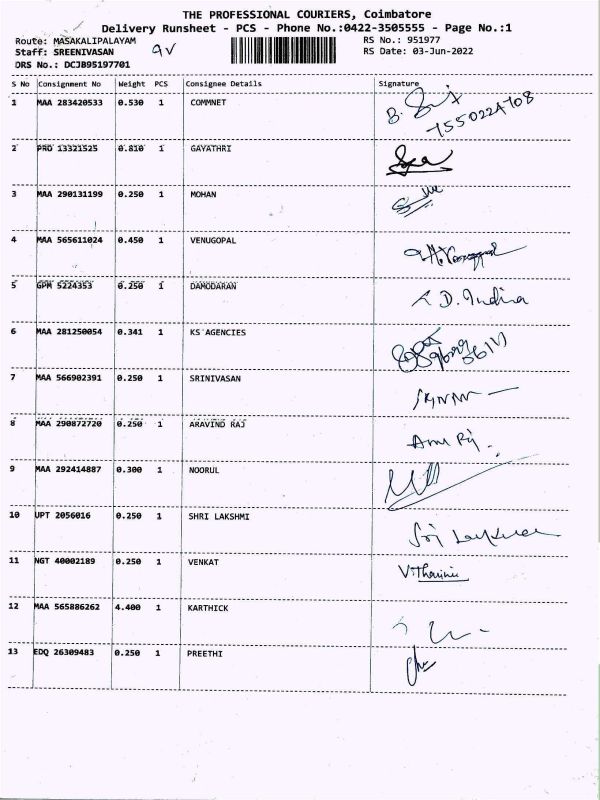 THE PROFESSIONAL COURIERS, Coimbatore
Delivery Runsheet - PCS - Phone No.:0422-3505555 - Page No.:1
Route: MASAKALIPALAYAM RS No.: 951977
Staff: SREENIVASAN RS Date: 03-Jun-2022
DRS No.: DCJB95197701
S No Consignment No Weight PCS Consignee Details Signature
1 MAA 283420533 0.530 1 COMMNET
2 PRO 13321525 0.810 1 GAYATHRI
3 MAA 290131199 0.250 1 MOHAN
4 MAA 565611024 0.450 1 VENUGOPAL
5 GPM 5224353 0.250 1 DAMODARAN D. Indira
6 MAA 281250054 0.341 1 KS AGENCIES
7 MAA 566902391 0.250 1 SRINIVASAN
8 MAA 290872720 0.250 1 ARAVIND RAJ
9 MAA 292414887 0.300 1 NOORUL
10 UPT 2056016 0.250 1 SHRI LAKSHMI
11 NGT 40002189 0.250 1 VENKAT
12 MAA 565886262 4.400 1 KARTHICK
13 EDQ 26309483 0.250 1 PREETHI